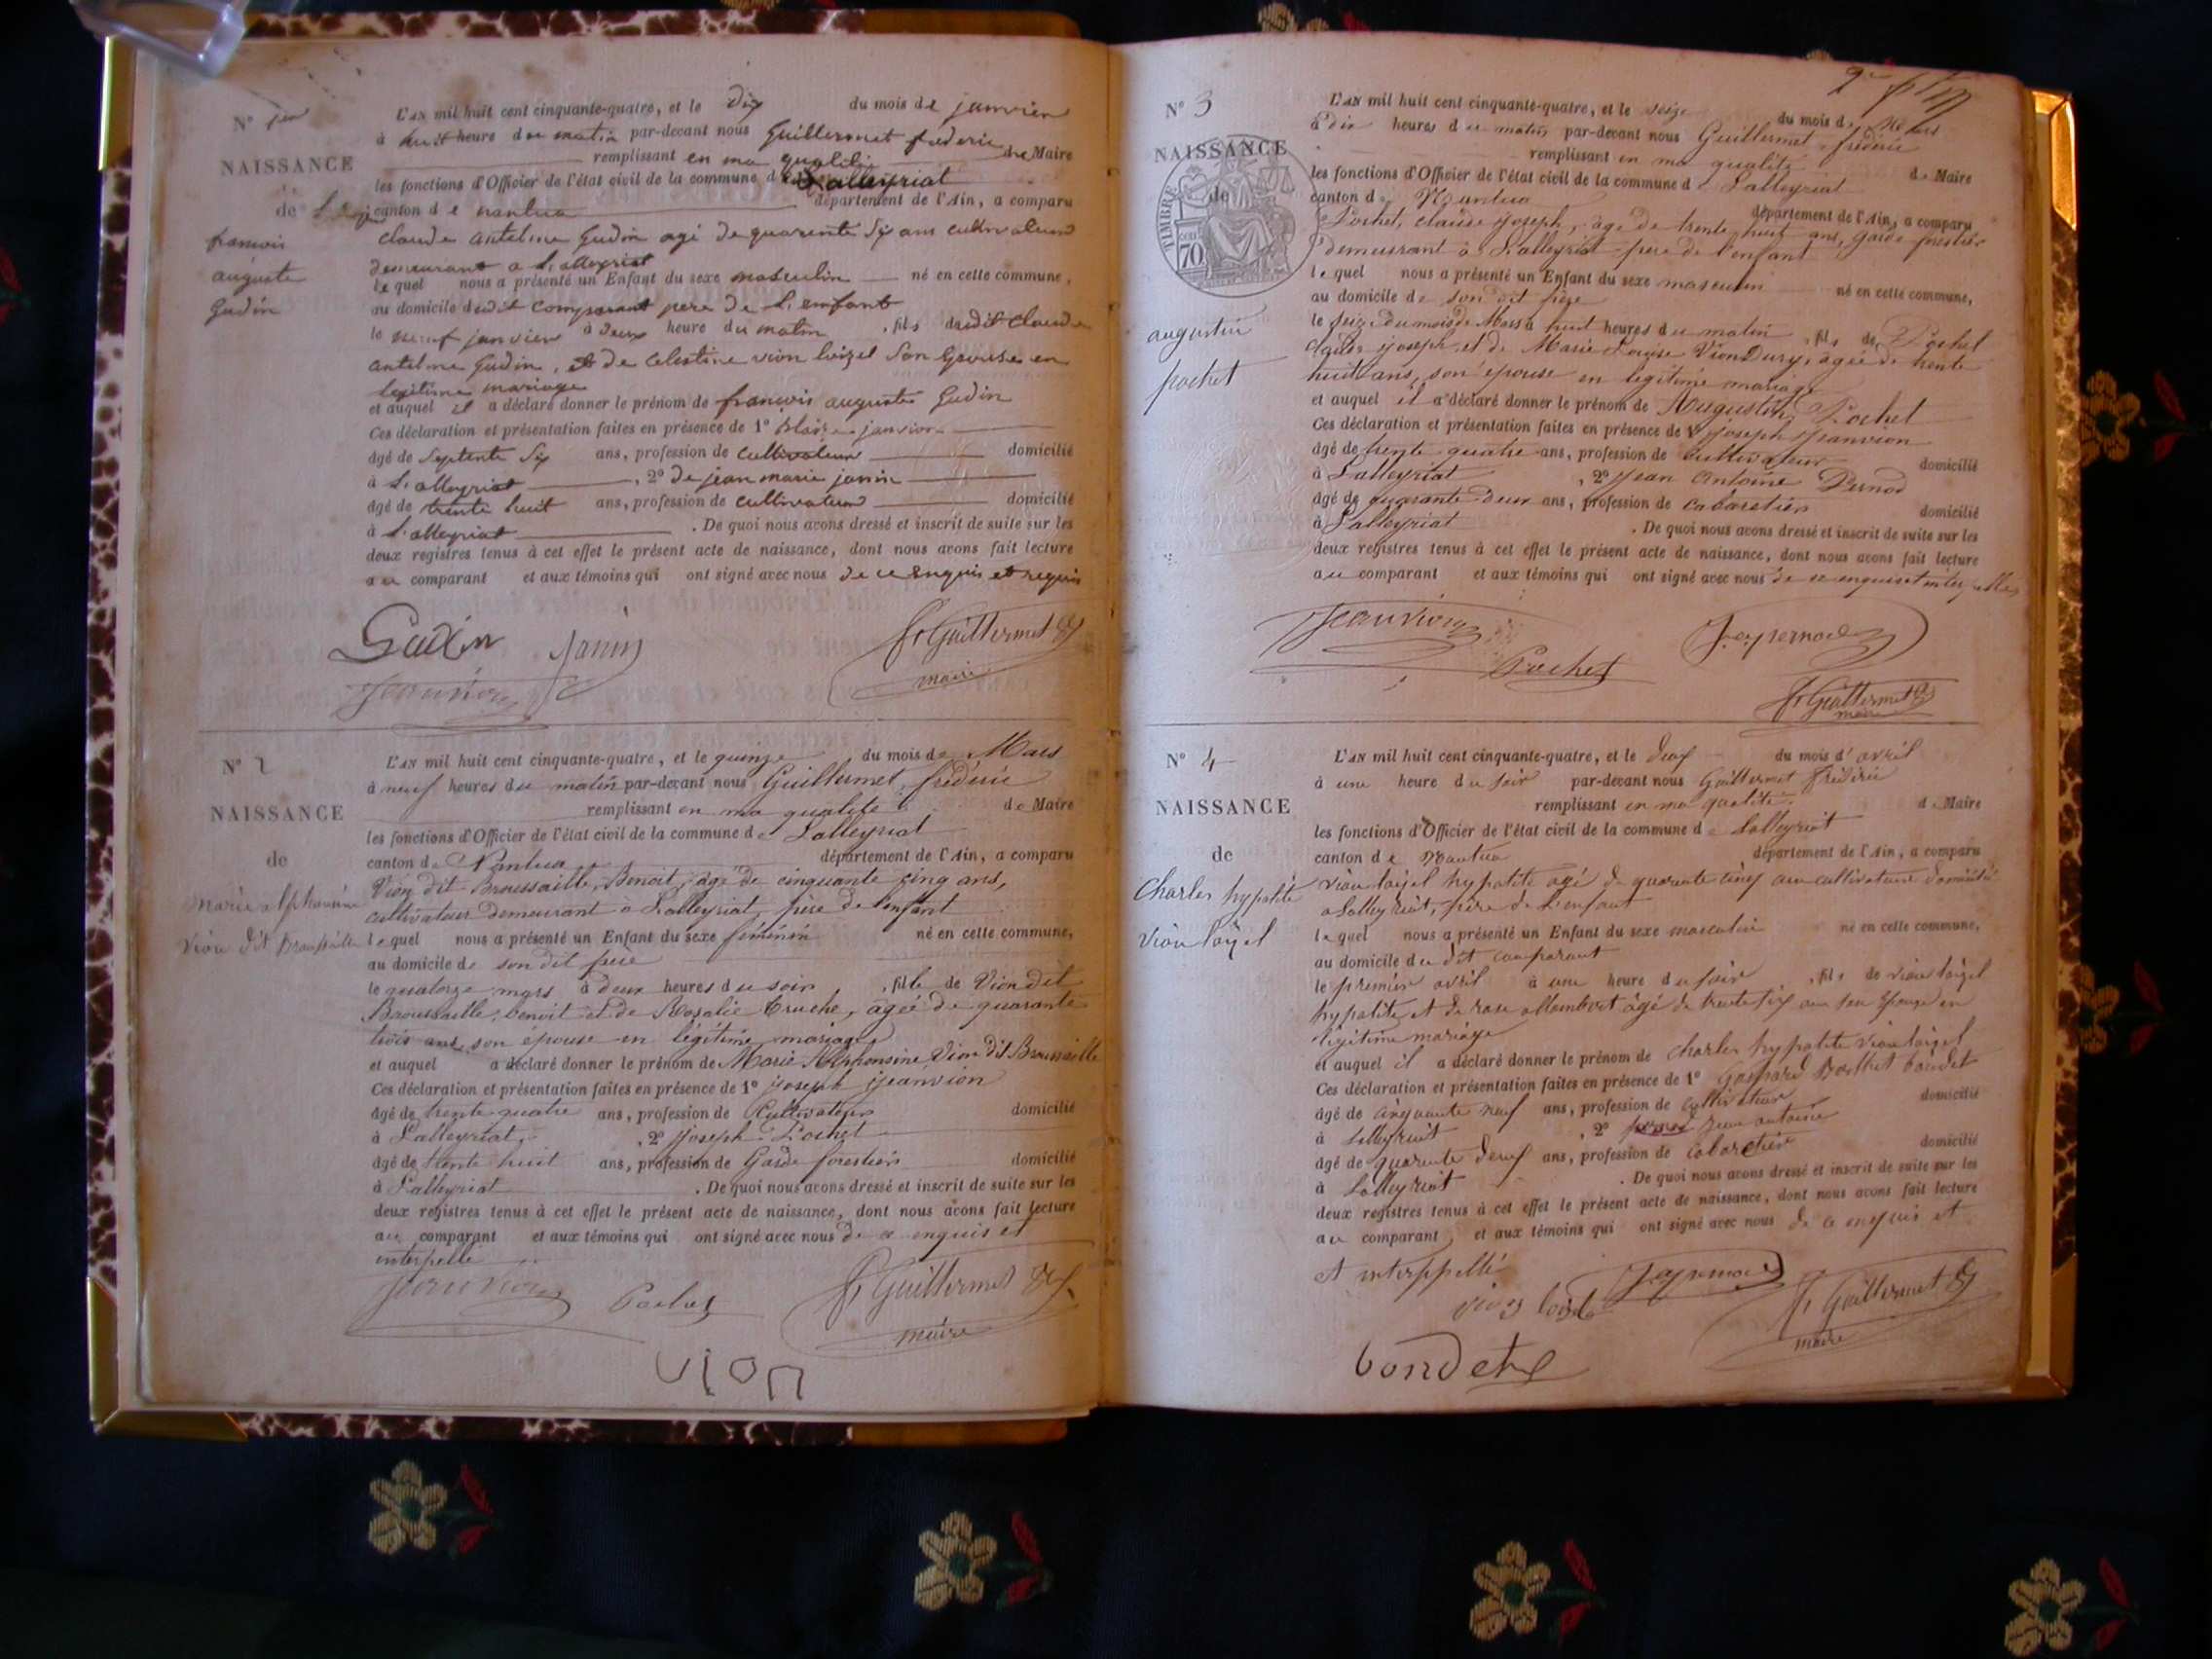 N° 1er
NAISSANCE
de
françois
auguste
Gudin
L'AN mil huit cent cinquante-quatre, et le dix du mois de janvier
à huit heure du matin par-devant nous Guillermet frederic
remplissant en ma qualité de Maire
les fonctions d'Officier de l'état civil de la commune de Lalleyriat
canton de nantua département de l'Ain, a comparu
claude antelme Gudin agé de quarente six ans cultivateur
demeurant a Lalleyriat
lequel nous a présenté un Enfant du sexe masculin né en cette commune,
au domicile dudit comparant pere de l'enfant
le neuf janvier à deux heure du matin, fils dudit claude
antelme Gudin, et de celestine vion loizel son epouse en
legitime mariage
et auquel il a déclaré donner le prénom de françois auguste Gudin
Ces déclaration et présentation faites en présence de 1° Blaise janvion
âgé de septente six ans, profession de cultivateur domicilié
à Lalleyriat, 2° de jean marie janin
âgé de trente huit ans, profession de cultivateur domicilié
à Lalleyriat. De quoi nous avons dressé et inscrit de suite sur les
deux registres tenus à cet effet le présent acte de naissance, dont nous avons fait lecture
au comparant et aux témoins qui ont signé avec nous de ce enquis et requis
Gudin Janin fr Guillermet
Jeanvion maire
N° 2
NAISSANCE
de
marie alphonsine
Vion dit Broussaille
L'AN mil huit cent cinquante-quatre, et le quinze du mois de Mars
à neuf heures du matin par-devant nous Guillermet, frédéric
remplissant en ma qualité de Maire
les fonctions d'Officier de l'état civil de la commune de Lalleyriat
canton de Nantua département de l'Ain, a comparu
Vion dit Broussaille, Benoit, âgé de cinquante cinq ans,
cultivateur demeurant à Lalleyriat, père de l'enfant
lequel nous a présenté un Enfant du sexe féminin né en cette commune,
au domicile de son dit père
le quatorze mars à deux heures du soir, fille de Vion dit
Broussaille, benoit et de Rosalie Truche, agée de quarante
trois ans, son épouse en légitime mariage
et auquel a déclaré donner le prénom de Marie Alphonsine Vion dit Broussaille
Ces déclaration et présentation faites en présence de 1° joseph jeanvion
âgé de trente quatre ans, profession de Cultivateur domicilié
à Lalleyriat, 2° Joseph Pochet
âgé de trente huit ans, profession de Garde forestier domicilié
à Lalleyriat. De quoi nous avons dressé et inscrit de suite sur les
deux registres tenus à cet effet le présent acte de naissance, dont nous avons fait lecture
au comparant et aux témoins qui ont signé avec nous de ce enquis et
interpellé
Jeanvion Pochet fr Guillermet
maire
vion
N° 3
NAISSANCE
de
TIMBRE
70
augustin
pochet
L'AN mil huit cent cinquante-quatre, et le seize du mois de Mars
à dix heures du matin par-devant nous Guillermet, frédéric
remplissant en ma qualité de Maire
les fonctions d'Officier de l'état civil de la commune de Lalleyriat
canton de Nantua département de l'Ain, a comparu
Pochet, claude joseph, âgé de trente huit ans, garde forestier
demeurant à Lalleyriat père de l'enfant
lequel nous a présenté un Enfant du sexe masculin né en cette commune,
au domicile de son dit père
le seize du mois de Mars à huit heures du matin, fils de Pochet
claude joseph et de Marie Louise Vion Dury, agée de trente
huit ans, son épouse en legitime mariage
et auquel il a déclaré donner le prénom de Augustin Pochet
Ces déclaration et présentation faites en présence de 1° joseph Jeanvion
âgé de trente quatre ans, profession de Cultivateur domicilié
à Lalleyriat, 2° Jean Antoine Pernod
âgé de quarante deux ans, profession de cabaretier domicilié
à Lalleyriat. De quoi nous avons dressé et inscrit de suite sur les
deux registres tenus à cet effet le présent acte de naissance, dont nous avons fait lecture
au comparant et aux témoins qui ont signé avec nous de ce enquis et interpellés
Jeanvion J. a. pernod
Pochet
fr Guillermet
maire
N° 4
NAISSANCE
de
Charles hypolite
vion loizel
L'AN mil huit cent cinquante-quatre, et le deux du mois d'avril
à une heure du soir par-devant nous Guillermet frédéric
remplissant en ma qualité de Maire
les fonctions d'Officier de l'état civil de la commune de Lalleyriat
canton de Nantua département de l'Ain, a comparu
vion loizel hypolite agé de quarante cinq ans cultivateur domicilié
a Lalleyriat, père de l'enfant
lequel nous a présenté un Enfant du sexe masculin né en cette commune,
au domicile du dit comparant
le premier avril à une heure du soir, fils de vion loizel
hypolite et de rose allombert âgé de trente six ans son épouse en
légitime mariage
et auquel il a déclaré donner le prénom de charles hypolite vion loizel
Ces déclaration et présentation faites en présence de 1° Gaspard Berthet bondet
âgé de cinquante neuf ans, profession de cultivateur domicilié
à Lalleyriat, 2° pernod jean antoine
âgé de quarante deux ans, profession de cabaretier domicilié
à Lalleyriat. De quoi nous avons dressé et inscrit de suite sur les
deux registres tenus à cet effet le présent acte de naissance, dont nous avons fait lecture
au comparant et aux témoins qui ont signé avec nous de ce enquis et
et interppellé
vion loizel J. a. pernod fr Guillermet
maire
bondet